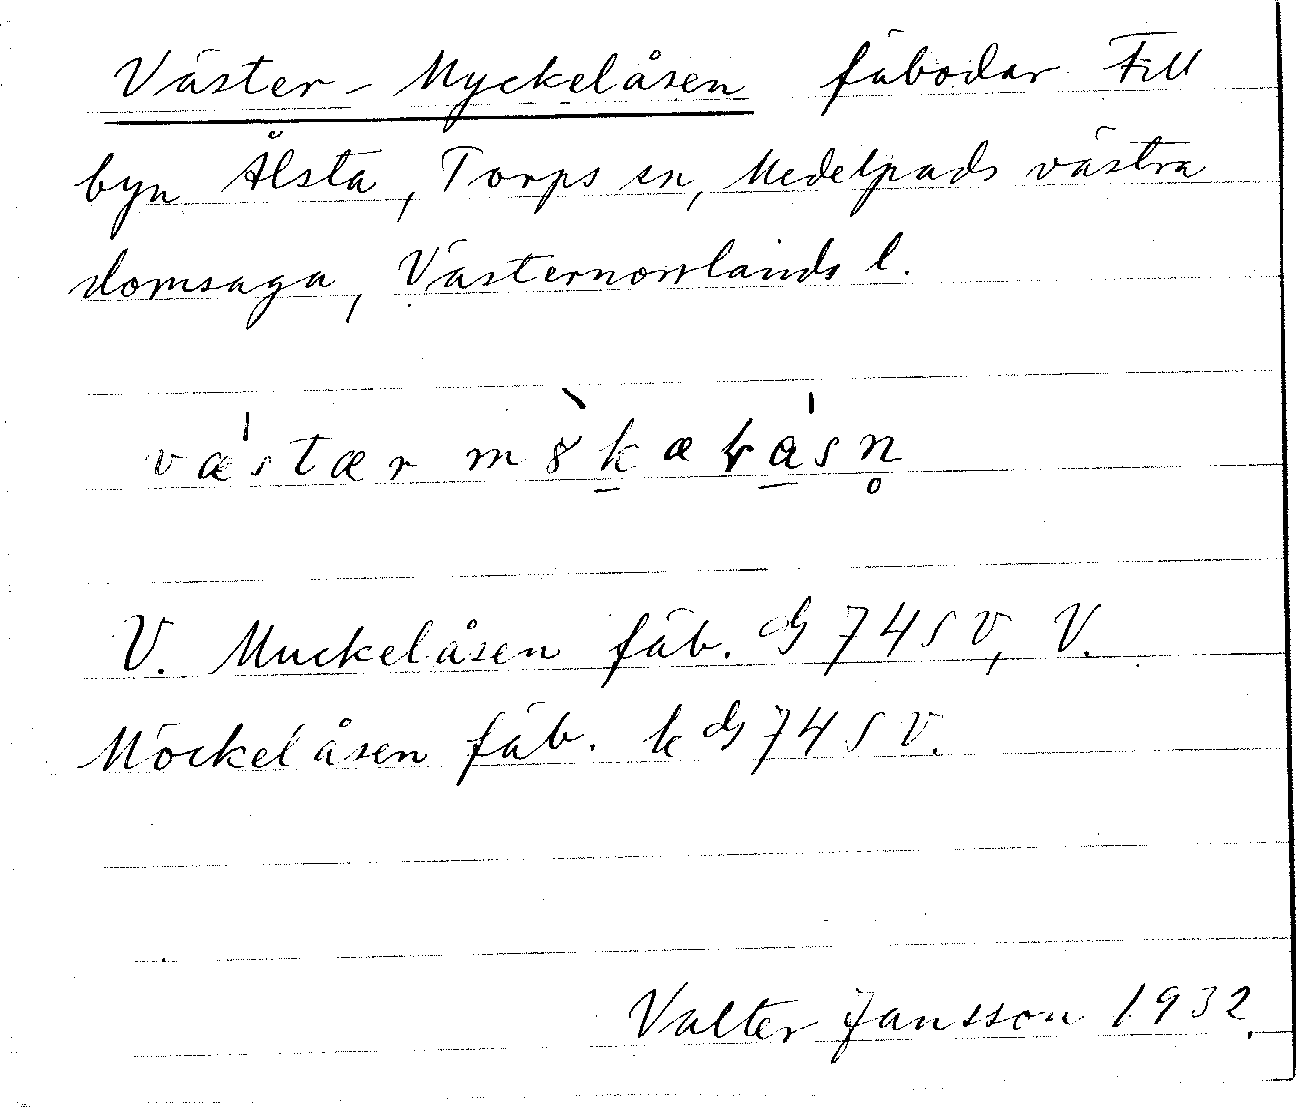 Väster-Myckelåsen fäbodar till
byn Ålsta, Torps sn, Medelpads västra
domsaga, Västernorrlands l.
væ'stær m8̀kæɫa'sn̥
V. Muckelåsen fäb. G 74 SV, V.
Möckelåsen fäb. k G 74 SV.
Valter Jansson 1932.